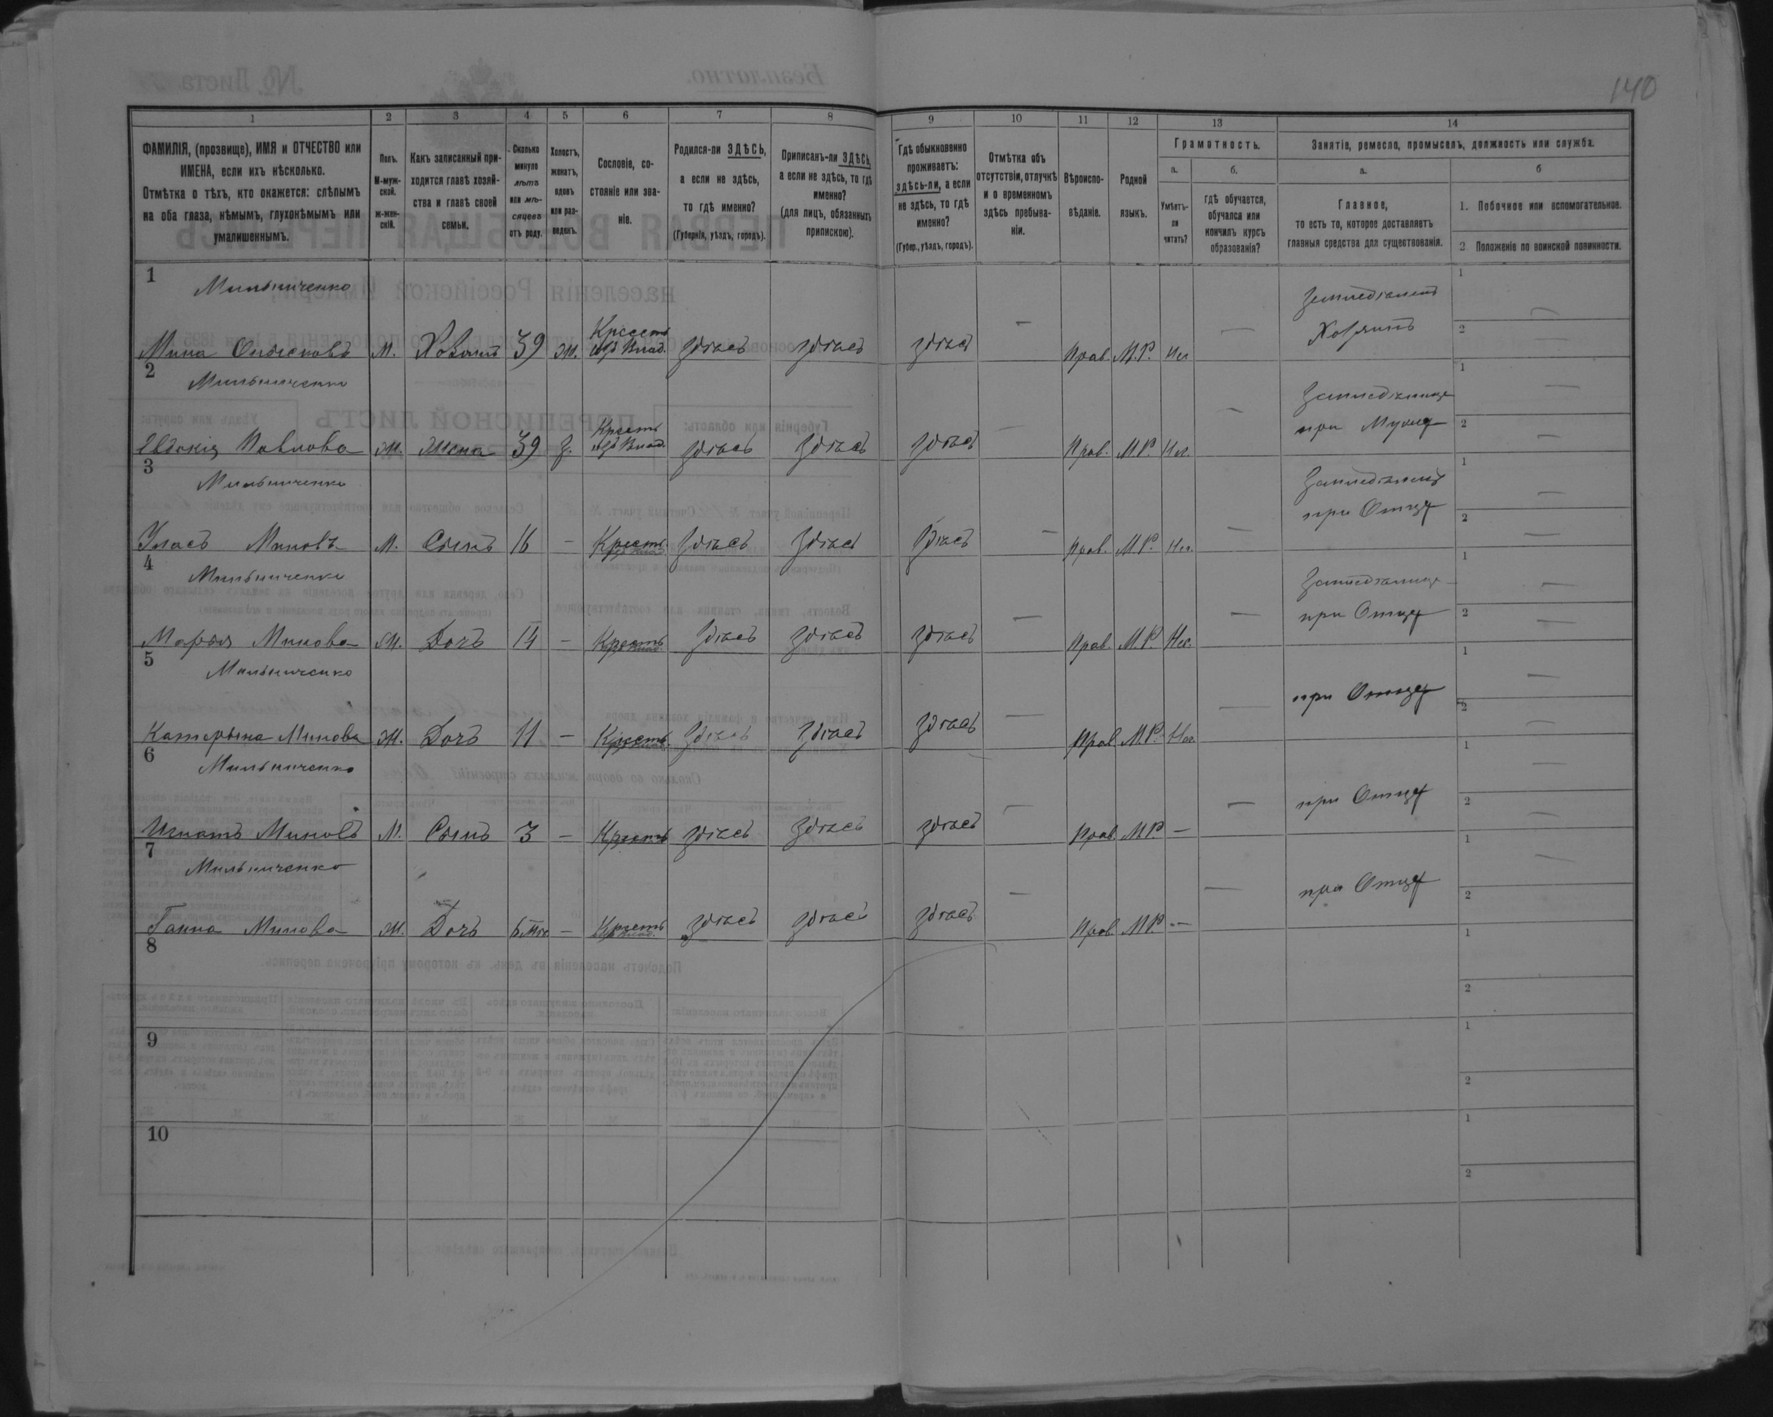 140
1 2 3 4 5 6 7 8 9 10 11 12 13 14
ФАМИЛІЯ, (прозвище), ИМЯ и ОТЧЕСТВО или ИМЕНА, если ихъ нѣсколько.
Отмѣтка о тѣхъ, кто окажется: слѣпымъ на оба глаза, нѣмымъ, глухонѣмымъ или умалишеннымъ.
Полъ. М-муж-ской. Ж-жен-скій.
Какъ записанный при-ходится главѣ хозяй-ства и главѣ своей семьи.
Сколько минуло лѣтъ или мѣ-сяцевъ отъ роду.
Холостъ, женатъ, вдовъ или раз-веденъ.
Сословіе, со-стояніе или зва-ніе.
Родился-ли ЗДѢСЬ, а если не здѣсь, то гдѣ именно?
(Губернія, уѣздъ, городъ).
Приписанъ-ли ЗДѢСЬ, а если не здѣсь, то гдѣ именно?
(для лицъ, обязанныхъ припискою).
Гдѣ обыкновенно проживаетъ: здѣсь-ли, а если не здѣсь, то гдѣ именно?
(Губер., уѣздъ, городъ).
Отмѣтка объ отсутствіи, отлучкѣ и о временномъ здѣсь пребыва-ніи.
Вѣроиспо-вѣданіе.
Родной языкъ.
Грамотность.
а. Умѣетъ-ли читать?
б. гдѣ обучается, обучался или кончилъ курсъ образованія?
Занятіе, ремесло, промыселъ, должность или служба.
а. Главное,
то есть то, которое доставляетъ главныя средства для существованія.
б
1. Побочное или вспомогательное.
2 Положеніе по воинской повинности.
1 Мильниченко Земледѣлецъ 1
Мина М. Хозяинъ 39 ж. Крестъ здѣсь здѣсь здѣсь — Прав. М.Р. Нѣ — Хозяинъ 2 —
2 Мильниченко Земледѣлица 1 —
Евдокія Павлова Ж. Жена 39 з. Крестъ здѣсь здѣсь здѣсь — Прав. М.Р. Нѣ. — при Мужѣ 2 —
3 Мильниченко Земледѣлецъ 1 —
Уласъ Миновъ М. Сынъ 16 — Крестъ здѣсь здѣсь здѣсь — Прав. М.Р. Нѣ. — при Отцѣ 2 —
4 Мильниченко Земледѣлица 1 —
Марья Минова Ж. Дочь 14 — Крестъ здѣсь здѣсь здѣсь — Прав. М.Р. Нѣ. — при Отцѣ 2 —
5 Мильниченко 1 —
Катерына Минова Ж. Дочь 11 — Крестъ здѣсь здѣсь здѣсь — Прав М.Р. Нѣ. — при Отцѣ 2 —
6 Мильниченко 1 —
Игнатъ Миновъ М. Сынъ 3 — Крестъ здѣсь здѣсь здѣсь — Прав. М.Р — — при Отцѣ 2 —
7 Мильниченко 1 —
Ганна Минова Ж. Дочь 6 мѣс — Крестъ здѣсь здѣсь здѣсь — Прав М.Р. — — при Отцѣ 2 —
8 1
2
9 1
2
10 1
2